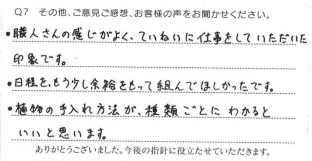 Q7 その他、ご意見ご感想、お客様の声をお聞かせください。
・職人さんの感じがよく、ていねいに仕事をしていただいた
印象です。
・日程を、もう少し余裕をもって組んでほしかったです。
・植物の手入れ方法が、種類ごとにわかると
いいと思います。
ありがとうございました。今後の指針に役立たせていただきます。